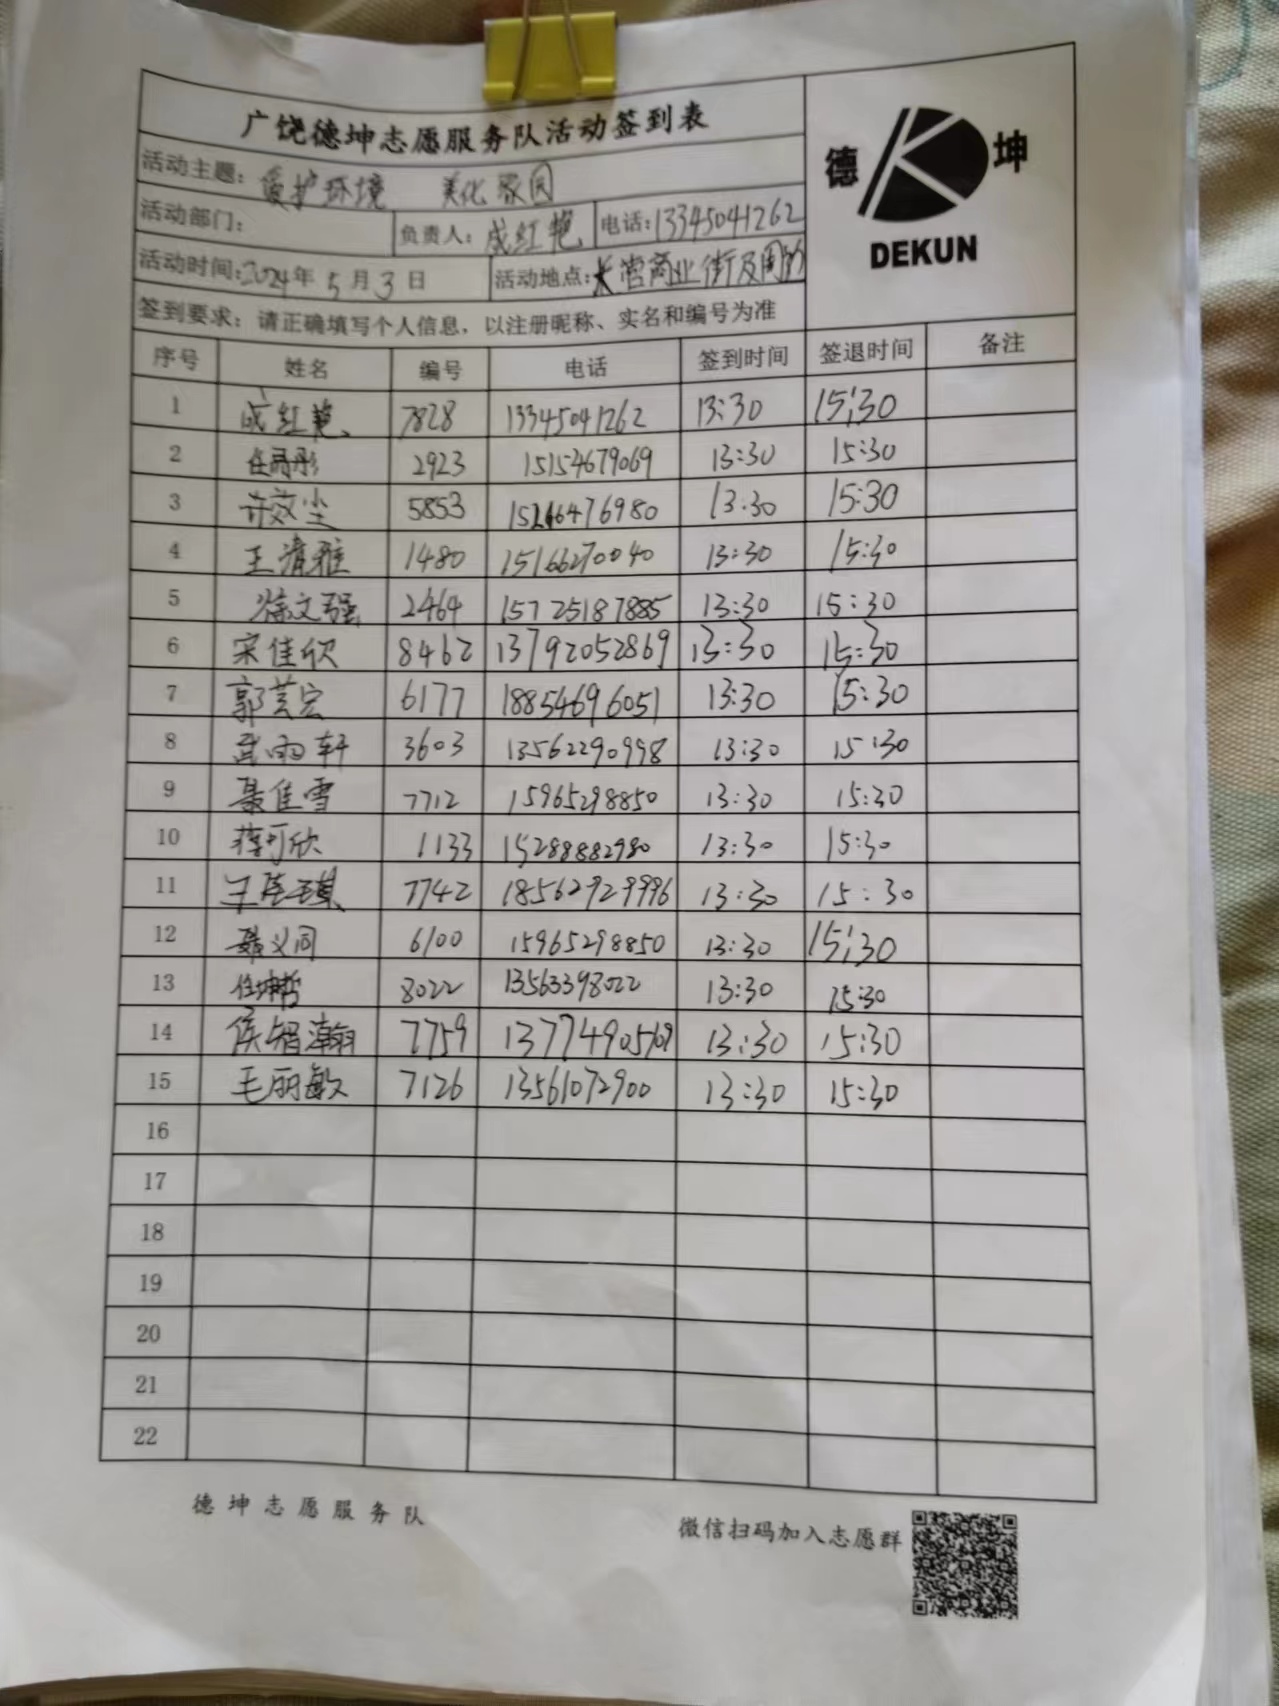 广饶德坤志愿服务队活动签到表
德 坤
DEKUN
活动主题: 爱护环境 美化家园
活动部门: 负责人: 成红艳 电话: 13345041262
活动时间: 2024年 5月 3日 活动地点: 大营商业街及周边
签到要求: 请正确填写个人信息, 以注册昵称、实名和编号为准
序号 姓名 编号 电话 签到时间 签退时间 备注
1 成红艳 7828 13345041262 13:30 15:30
2 2923 15154679069 13:30 15:30
3 许效尘 5853 15266476980 13:30 15:30
4 王清雅 1480 15166270040 13:30 15:30
5 徐文强 2464 15725187885 13:30 15:30
6 宋佳欣 8462 13792052869 13:30 15:30
7 郭芸宏 6177 18854696051 13:30 15:30
8 武雨轩 3603 13562290998 13:30 15:30
9 聂佳雪 7712 15965298850 13:30 15:30
10 蒋可欣 1133 15288882980 13:30 15:30
11 7742 18562929996 13:30 15:30
12 聂义同 6100 15965298850 13:30 15:30
13 任坤哲 8022 13563398022 13:30 15:30
14 侯智瀚 7759 13:30 15:30
15 毛丽敏 7126 13561072900 13:30 15:30
16
17
18
19
20
21
22
德坤志愿服务队 微信扫码加入志愿群